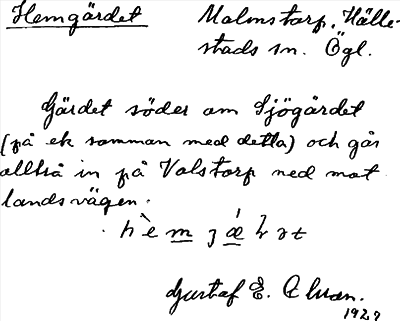 Hemgärdet Malmstorp, Hälle-
stads sn. Ögl.
Gärdet söder om Sjögärdet
(på ek samman med detta) och går
alltså in på Valstorp ned mot
landsvägen.
Gustaf E.